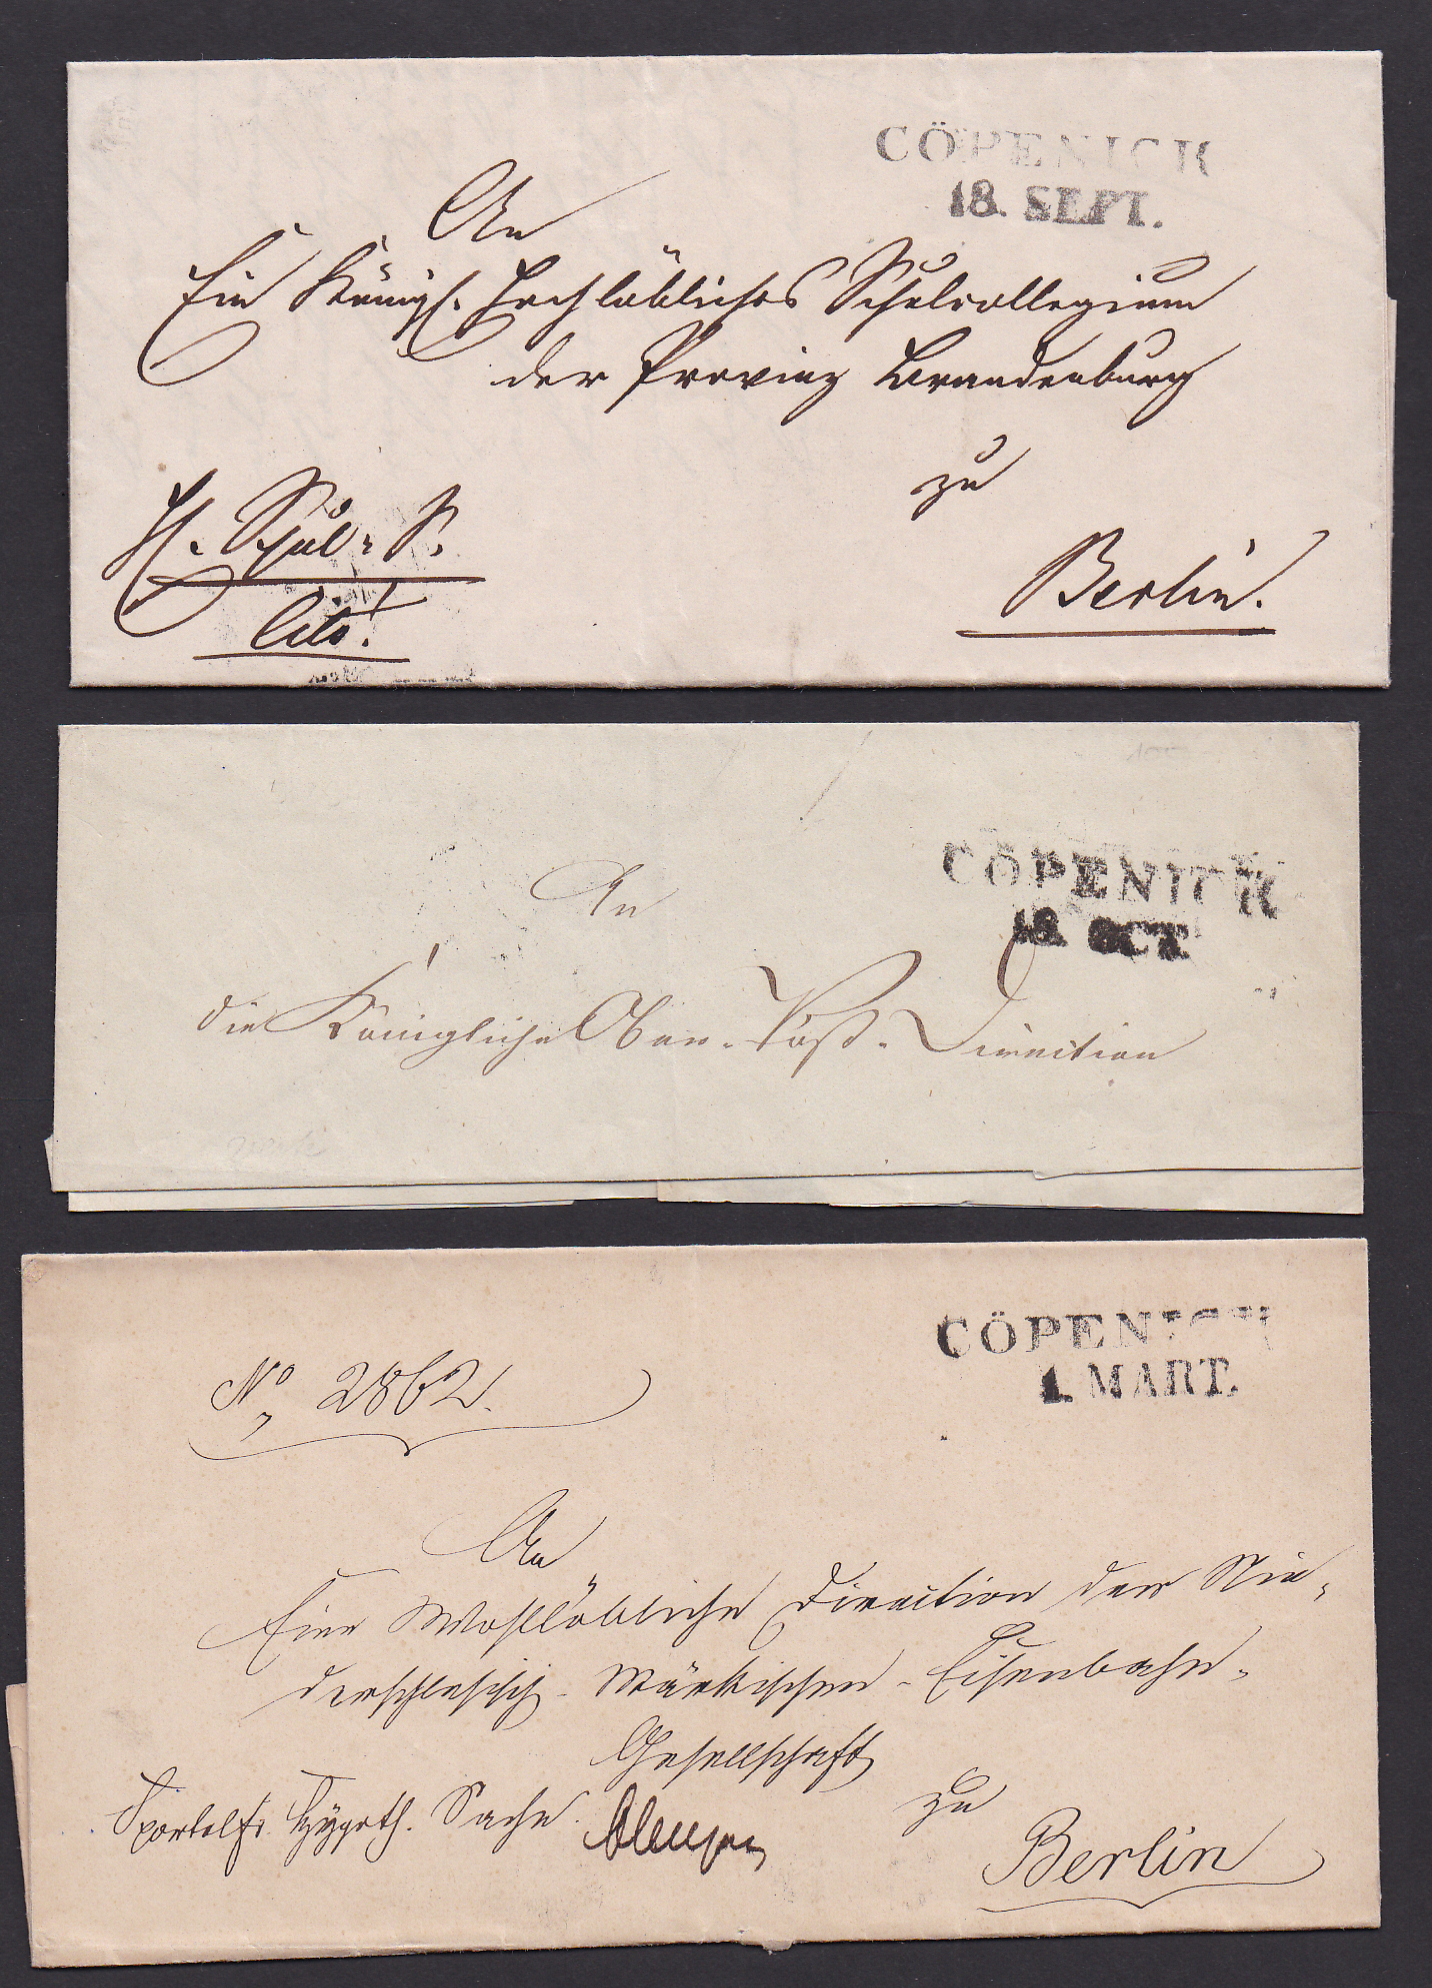 CÖPENICK
18. SEPT.
An
Ein Königl. Hochlöbliches Schulcollegium
der Provinz Brandenburg
zu
Berlin.
H. Schul. S.
Cito!
CÖPENICK
18. OCT.
An
die Königliche Ober-Post-Direction
CÖPENICK
1. MART.
No 2862.
An
Eine Wohllöbliche Direction der Nie-
derschlesisch-Märkischen-Eisenbahn-
Gesellschaft
zu
Berlin
Hypoth. Sache.